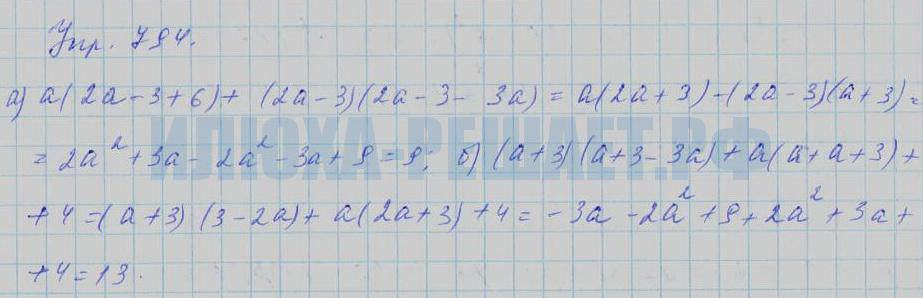 Упр. 794.
а) a(2a-3+6)+ (2a-3)(2a-3-3a)=a(2a+3)-(2a-3)(a+3)=
ИЛЮХА-РЕШАЕТ.РФ
=2a²+3a-2a²-3a+9=9; б) (a+3)(a+3-3a)+a(a+a+3)+
+4=(a+3)(3-2a)+a(2a+3)+4=-3a-2a²+9+2a²+3a+
+4=13.